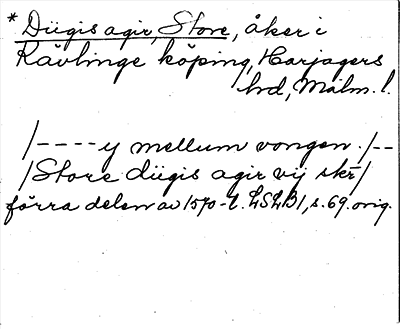 * Dügis agir, Store, åker i
Kävlinge köping, Harjagers
hd, Malm. l.
/----y mellum vongen. /--
/Store dügis agir vij skr̄/
förra delen av 1570-t. LSLB1, s. 69. orig.